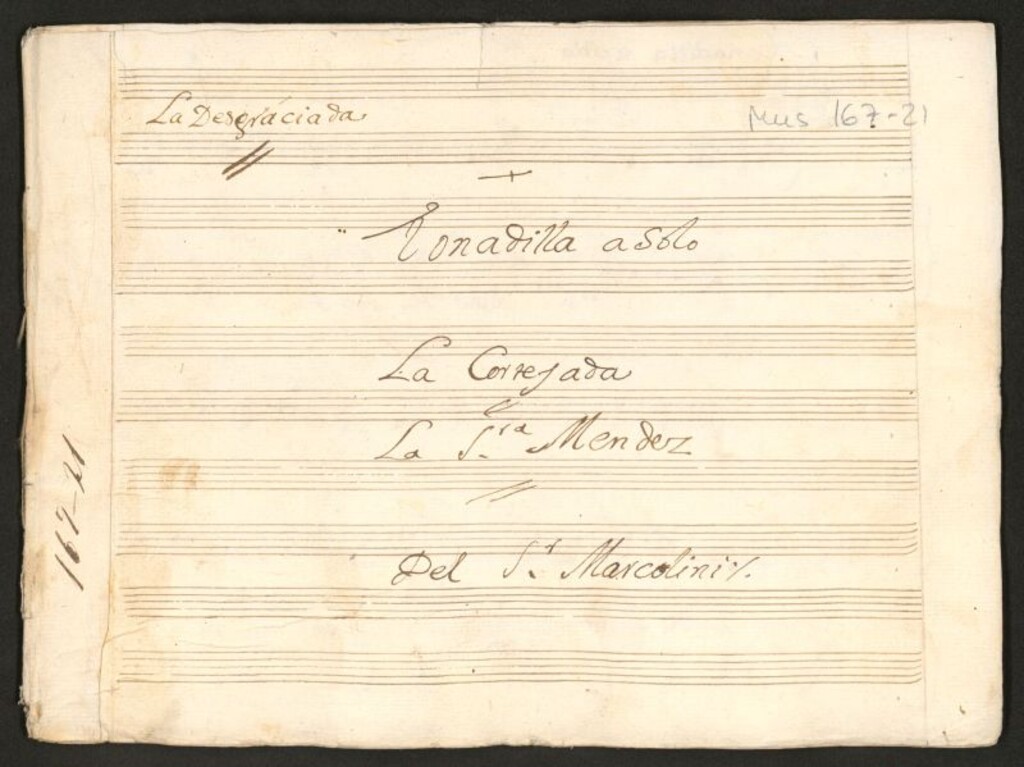 La Desgráciada
Mus 167-21
Tonadilla a Solo
La Cortejada
La S.ra Mendez
Del S.r Marcolini
167-21